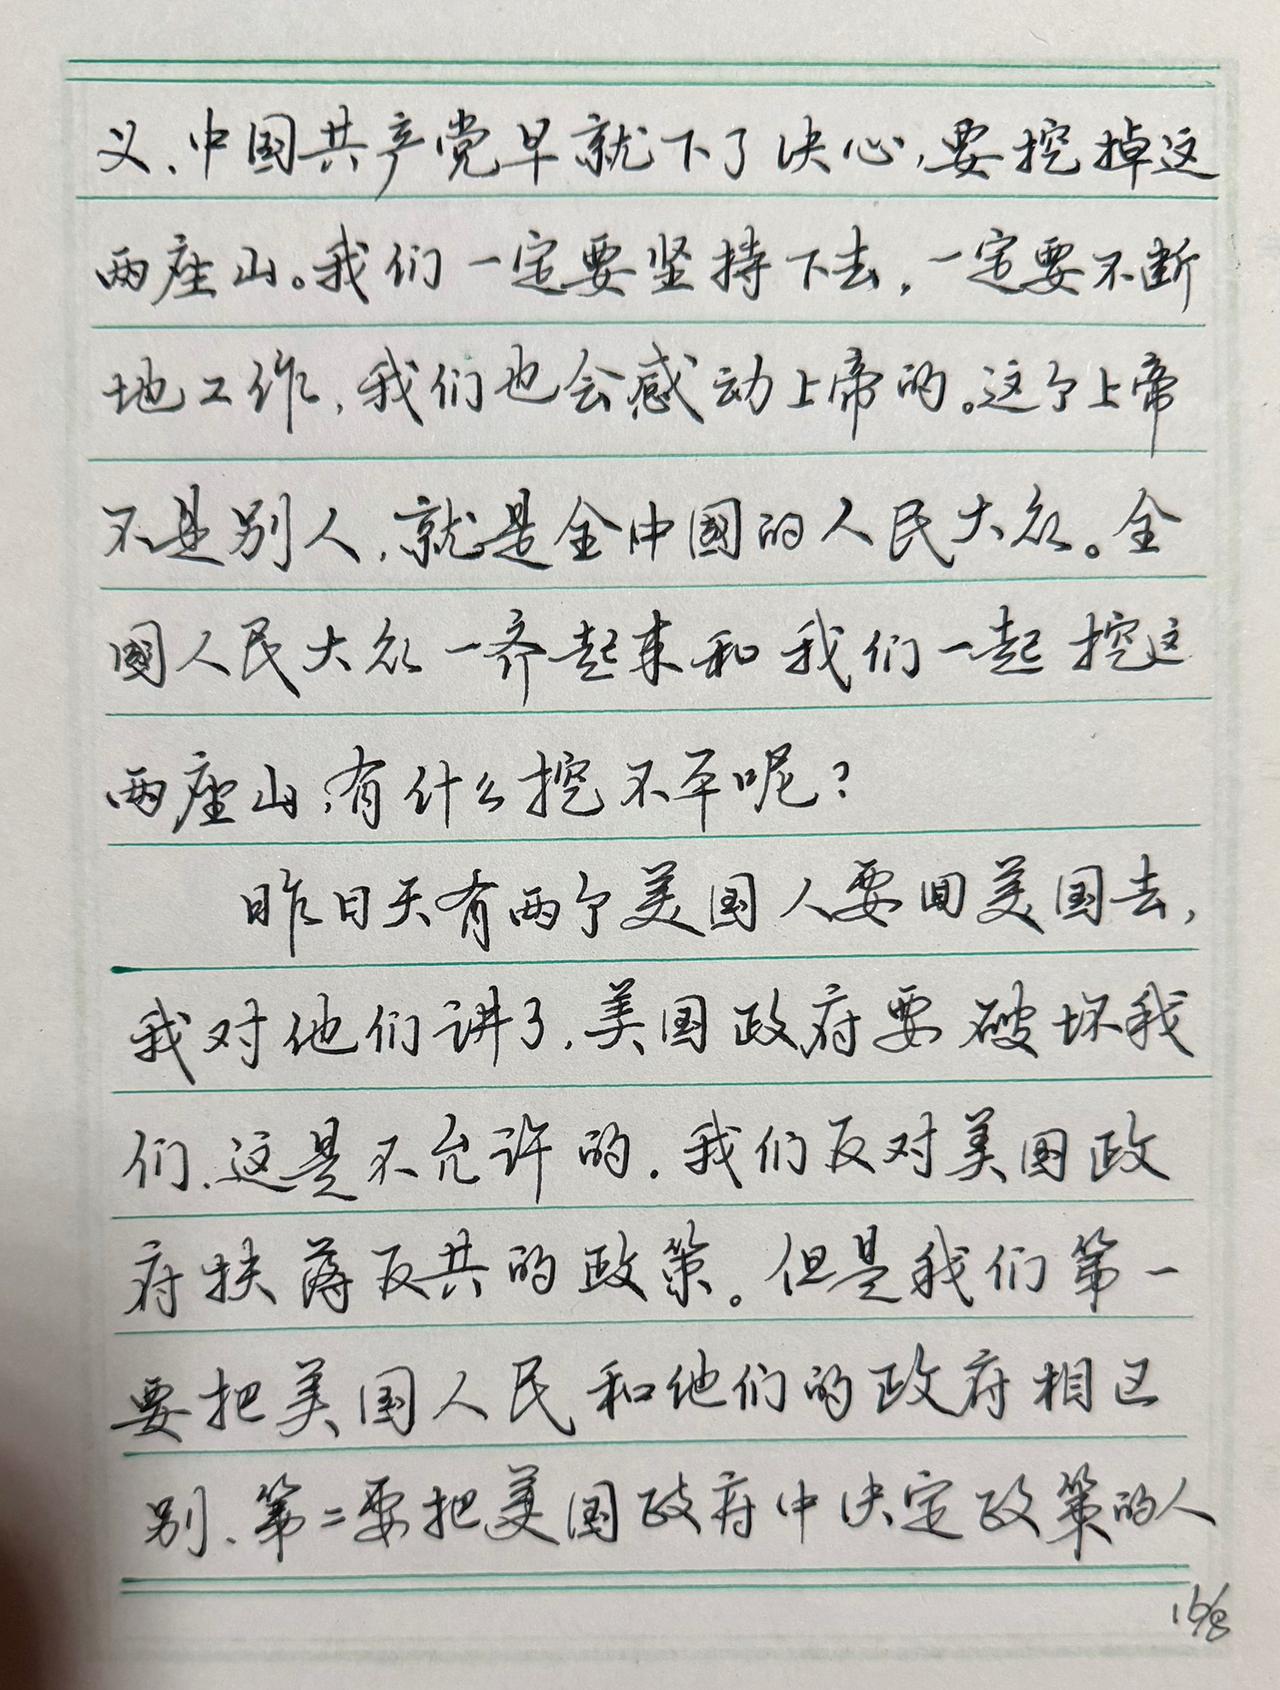 义、中国共产党早就下了决心,要挖掉这
两座山。我们一定要坚持下去,一定要不断
地工作,我们也会感动上帝的。这个上帝
不是别人,就是全中國的人民大众。全
國人民大众一齐起来和我们一起挖这
两座山,有什么挖不平呢?
昨日天有两个美国人要回美国去,
我对他们讲了,美国政府要破坏我
们、这是不允许的。我们反对美国政
府扶蒋反共的政策。但是我们第一
要把美国人民和他们的政府相区
别、第二要把美国政府中决定政策的人
16/8